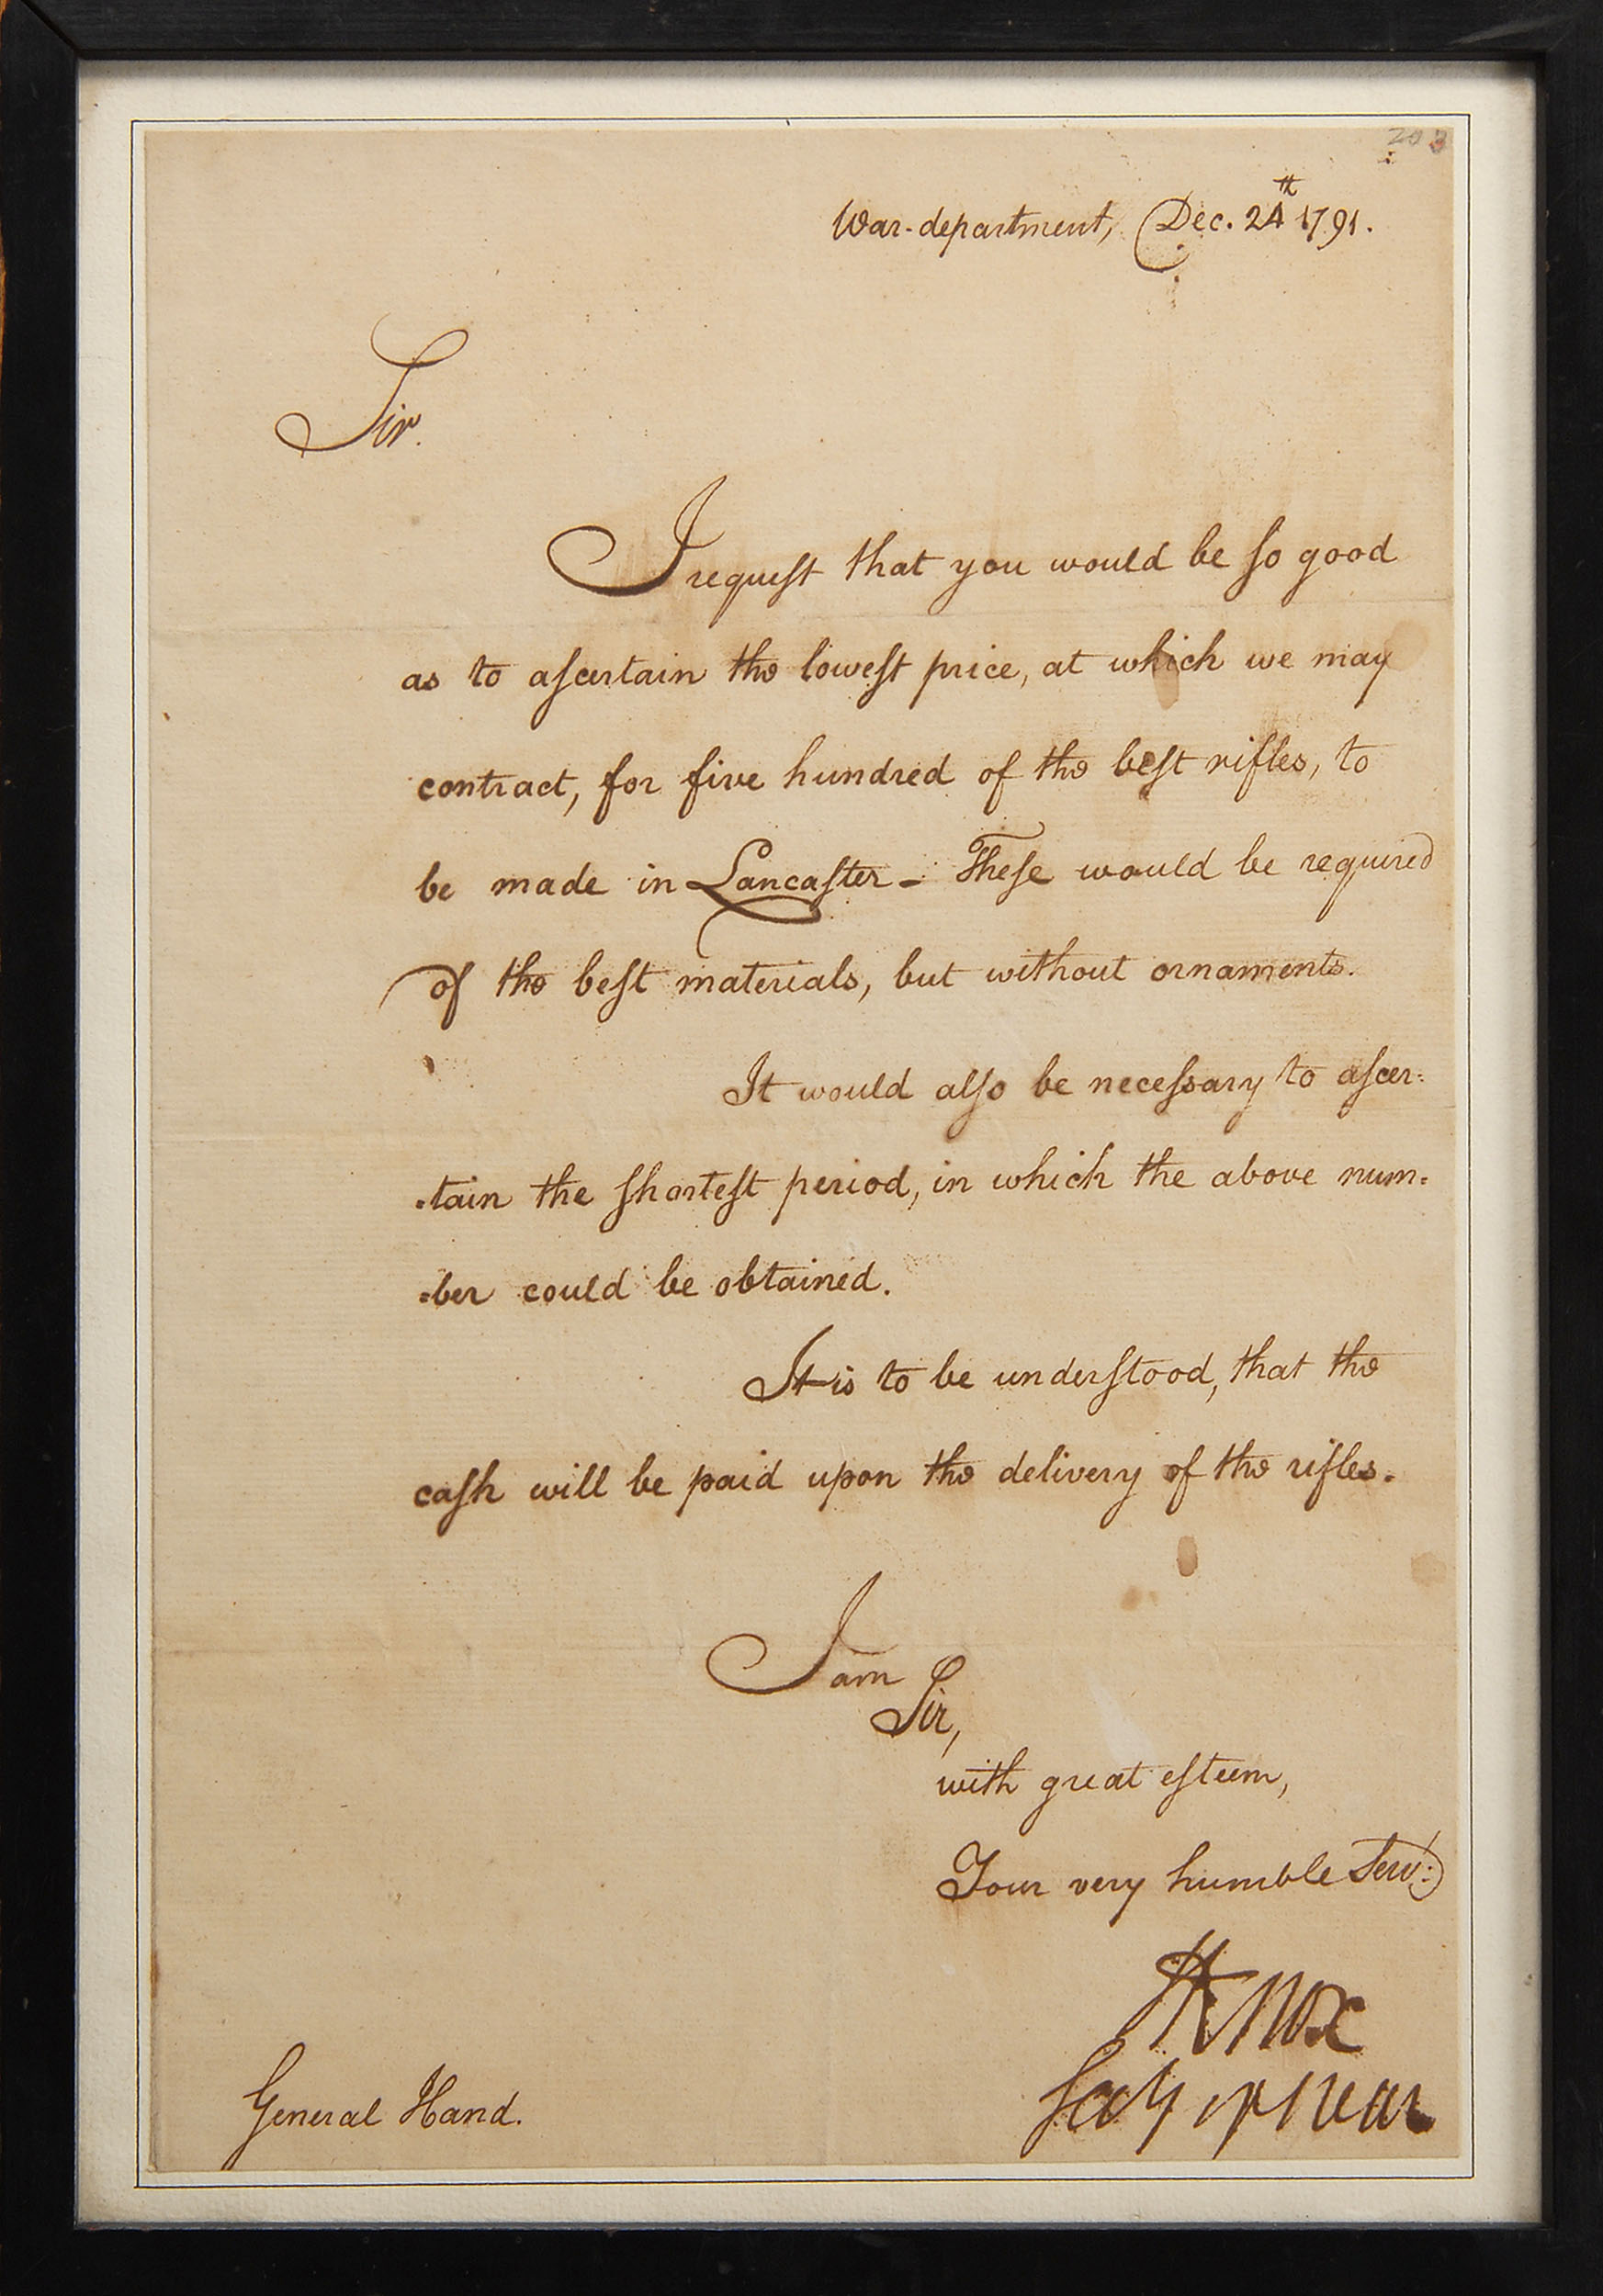 203
War-department, Dec. 24th 1791.
Sir.
I request that you would be so good
as to ascertain the lowest price, at which we may
contract, for five hundred of the best rifles, to
be made in Lancaster - These would be required
of the best materials, but without ornaments.
It would also be necessary to ascer=
=tain the shortest period, in which the above num=
=ber could be obtained.
It is to be understood, that the
cash will be paid upon the delivery of the rifles.
I am
Sir,
with great esteem,
Your very humble Serv:
HKnox
Secy of War
General Hand.